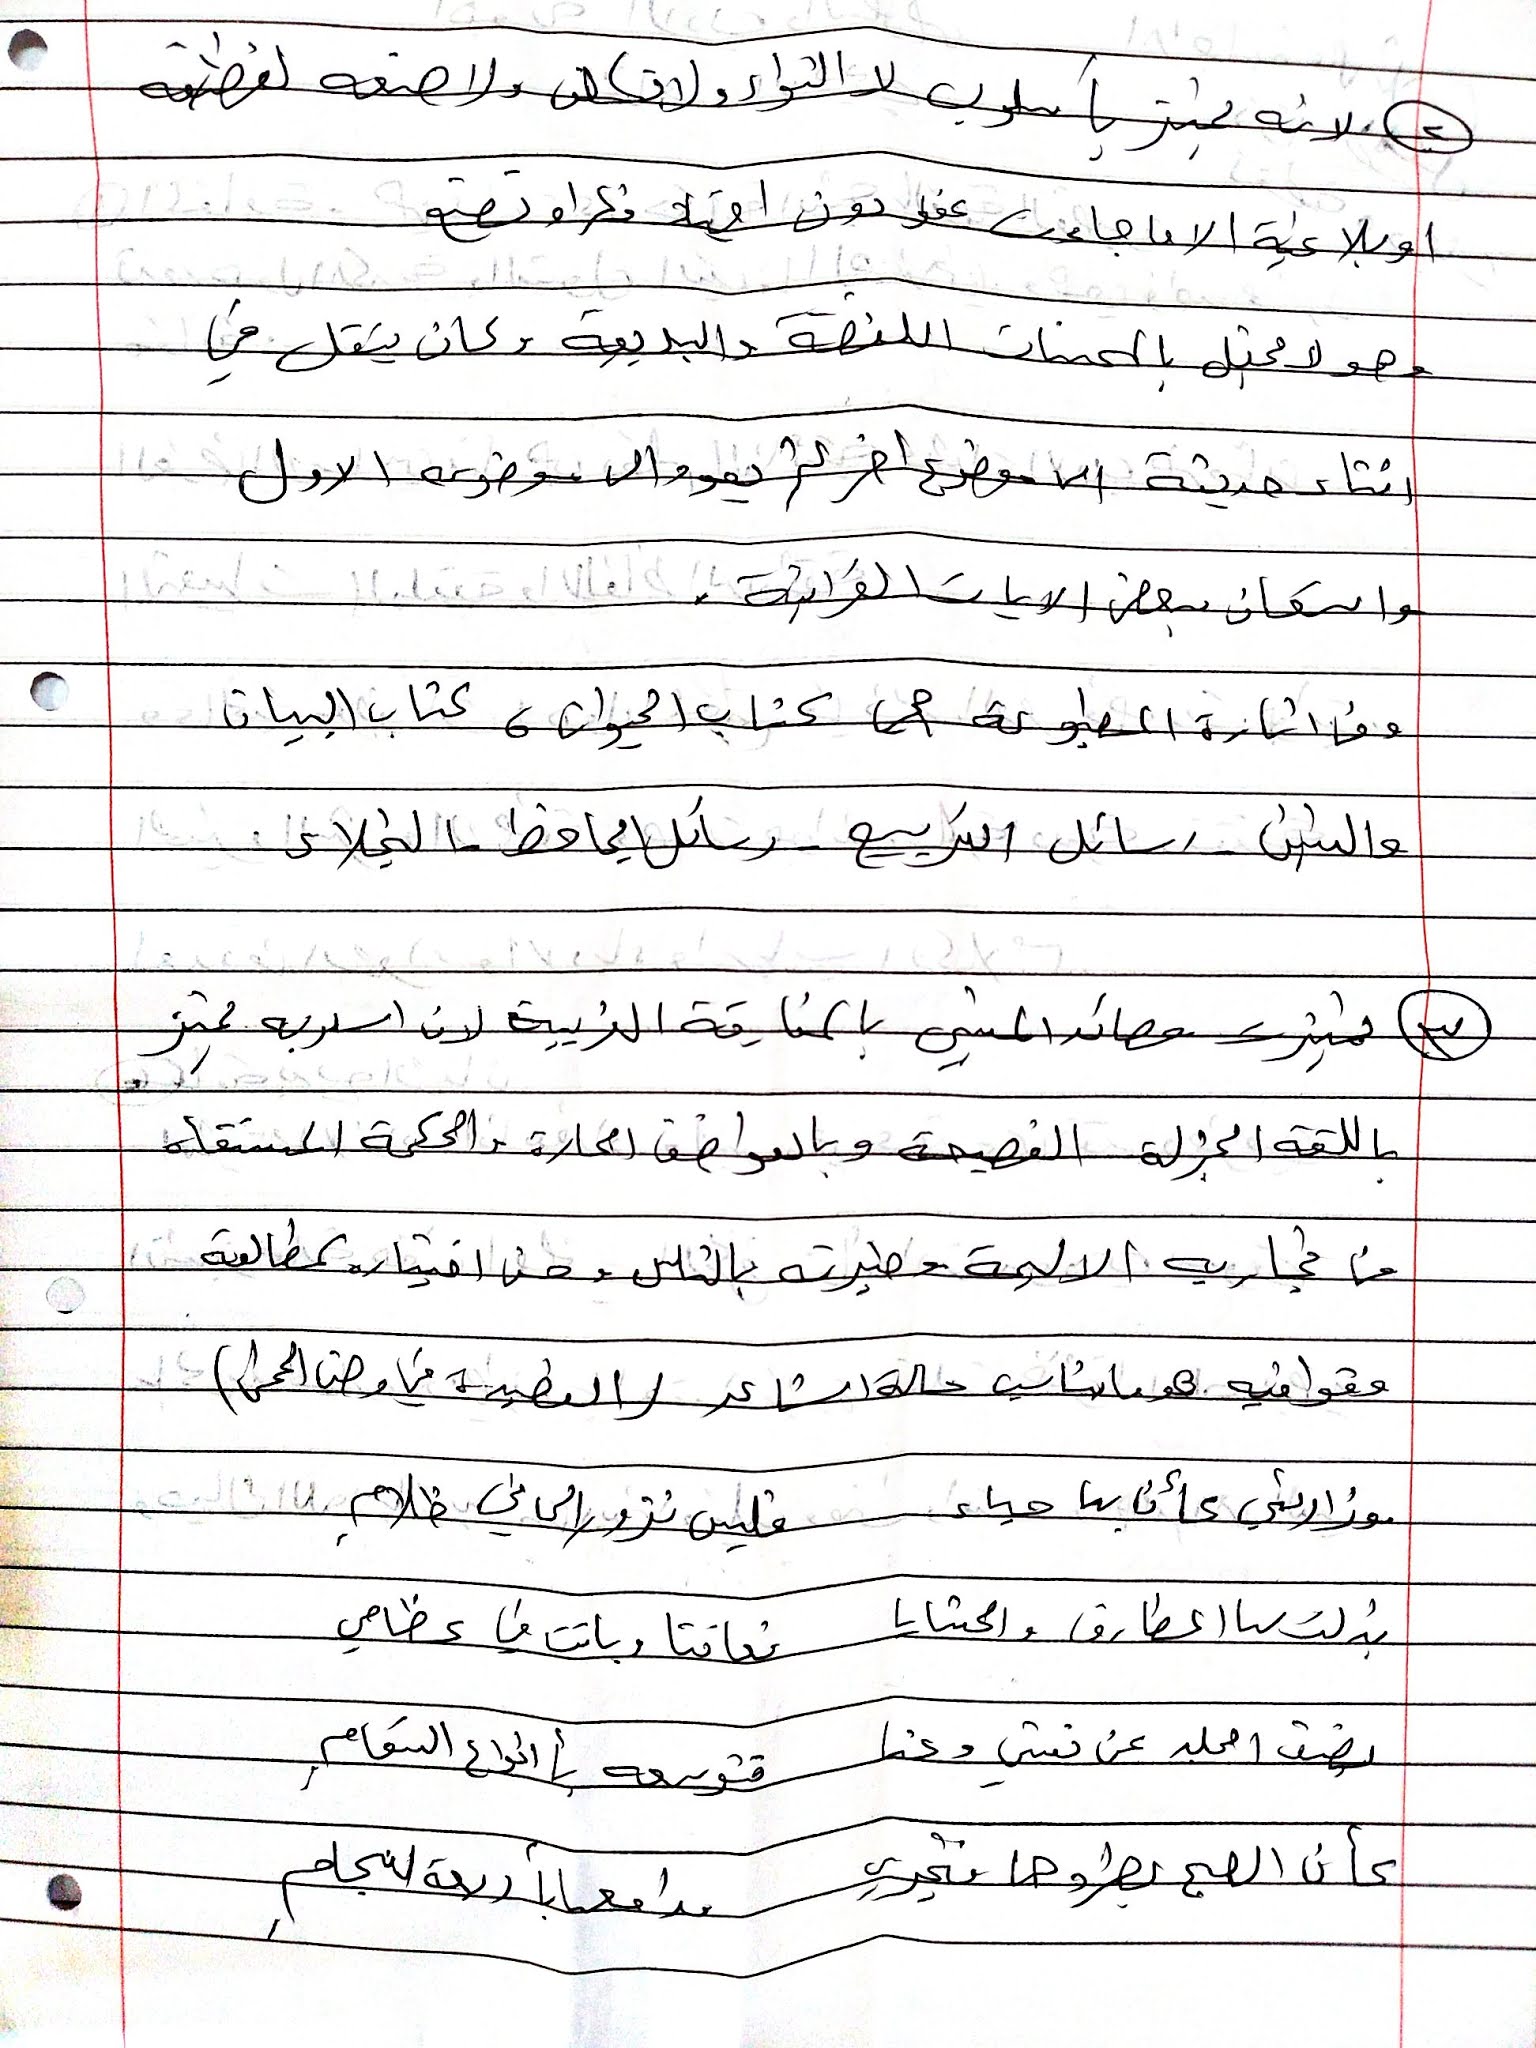 ٢ لانه يمتز بأسلوب لا التواء ولا ولا صنعه لفضيه
او بلاغية الا ما جاءت عفو دون اجهاد فكر او تصنع
وهو لا محتل بالمحسنات اللفضية والبديعية وكان ينتقل في
اثناء حديثة الى موضوع اخر ثم يعود الى موضوعه الاول
واستعان ببعض الايات القرانية .
ومن اثارة المطبوعة كتاب الحيوان ، كتاب البيان
والتبين - رسائل التربيع - رسائل الجاحظ - البخلاء
٣ تميزت قصائد المتنبي بالغربية لان اسلوبه يمتز
باللغة الجزلة الفصيحة وبالعواطف الحارة والحكمة المستقاه
من تجاربه الاليمة وخبرته بالناس وحسن اختياره لمطالعة
وقوافيه بما يناسب حالة الشاعر (القصيدة في وصف الحمى)
وزارتني كأن بها حياء فليس تزور الا في ظلام
بذلت لها المطارق والحشايا فعافتها وباتت في عظامي
يضيق الجلد عن نفسي وعنها فتوسعه بأنواع السقام
كأن الصبح يطردها فتجري مدامعها بأربعة سجام